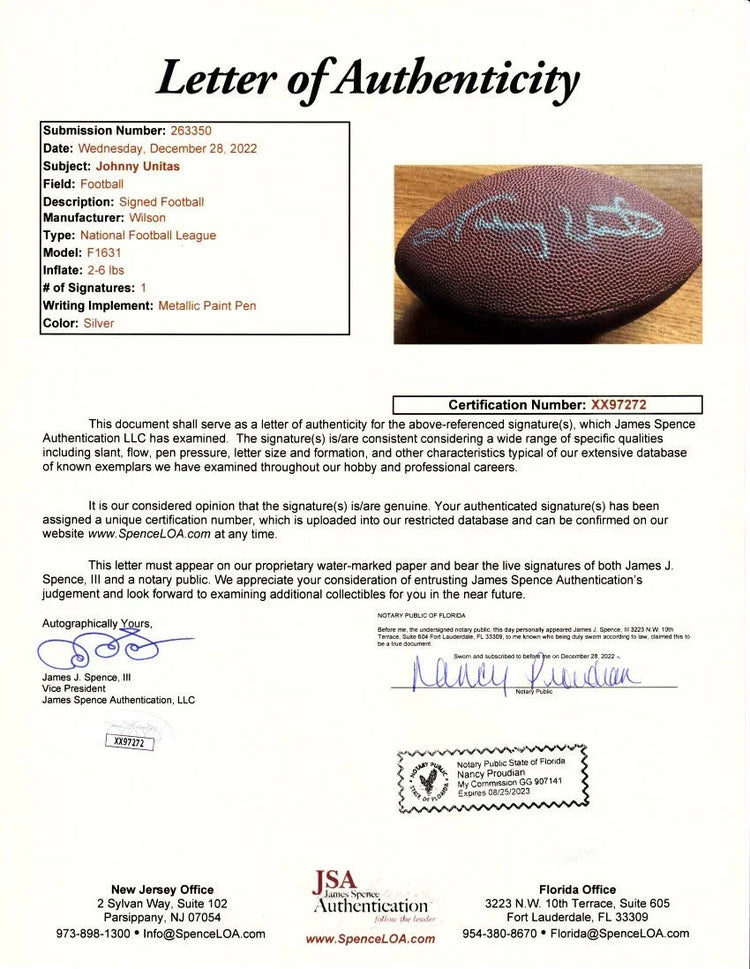 Letter of Authenticity
Submission Number: 263350
Date: Wednesday, December 28, 2022
Subject: Johnny Unitas
Field: Football
Description: Signed Football
Manufacturer: Wilson
Type: National Football League
Model: F1631
Inflate: 2-6 lbs
# of Signatures: 1
Writing Implement: Metallic Paint Pen
Color: Silver
Johnny Unitas
Certification Number: XX97272
This document shall serve as a letter of authenticity for the above-referenced signature(s), which James Spence
Authentication LLC has examined. The signature(s) is/are consistent considering a wide range of specific qualities
including slant, flow, pen pressure, letter size and formation, and other characteristics typical of our extensive database
of known exemplars we have examined throughout our hobby and professional careers.
It is our considered opinion that the signature(s) is/are genuine. Your authenticated signature(s) has been
assigned a unique certification number, which is uploaded into our restricted database and can be confirmed on our
website www.SpenceLOA.com at any time.
This letter must appear on our proprietary water-marked paper and bear the live signatures of both James J.
Spence, III and a notary public. We appreciate your consideration of entrusting James Spence Authentication's
judgement and look forward to examining additional collectibles for you in the near future.
Autographically Yours,
James J. Spence, III
Vice President
James Spence Authentication, LLC
XX97272
NOTARY PUBLIC OF FLORIDA
Before me, the undersigned notary public, this day personally appeared James J. Spence, III 3223 N.W. 10th
Terrace, Suite 604 Fort Lauderdale, FL 33309, to me known who being duly sworn according to law, claimed this to
be a true document.
Sworn and subscribed to before me on December 28, 2022
Nancy Proudian
Notary Public
NOTARY PUBLIC
STATE OF FLORIDA
Notary Public State of Florida
Nancy Proudian
My Commission GG 907141
Expires 08/25/2023
New Jersey Office
2 Sylvan Way, Suite 102
Parsippany, NJ 07054
973-898-1300 • Info@SpenceLOA.com
JSA
James Spence
Authentication
follow the leader
www.SpenceLOA.com
Florida Office
3223 N.W. 10th Terrace, Suite 605
Fort Lauderdale, FL 33309
954-380-8670 • Florida@SpenceLOA.com